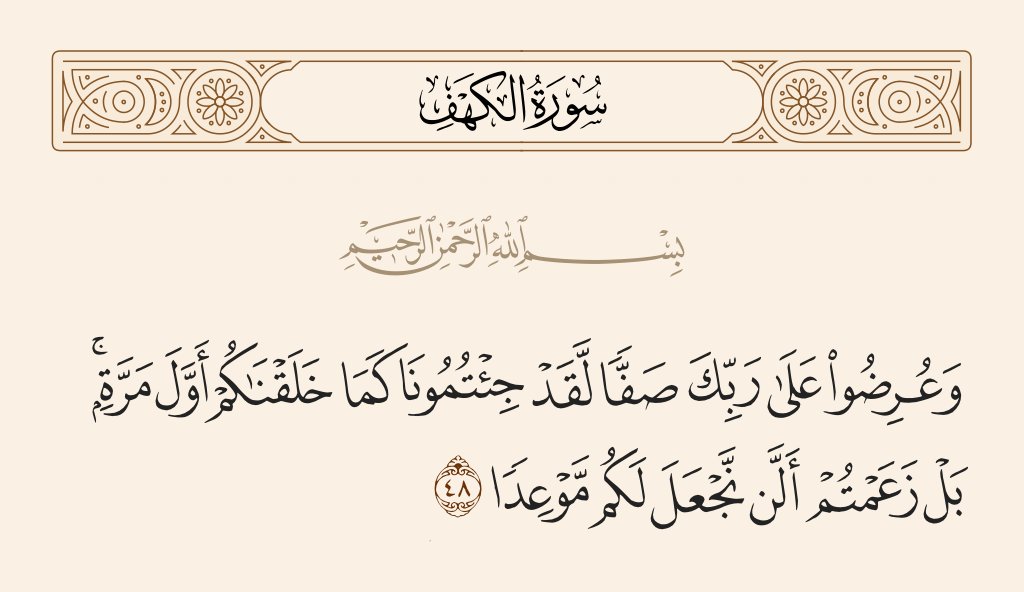 سُورَةُ الْكَهْفِ
بِسْمِ ٱللَّهِ ٱلرَّحْمَٰنِ ٱلرَّحِيمِ
وَعُرِضُوا۟ عَلَىٰ رَبِّكَ صَفًّا لَّقَدْ جِئْتُمُونَا كَمَا خَلَقْنَٰكُمْ أَوَّلَ مَرَّةٍۭ ۚ
بَلْ زَعَمْتُمْ أَلَّن نَّجْعَلَ لَكُم مَّوْعِدًا ٤٨